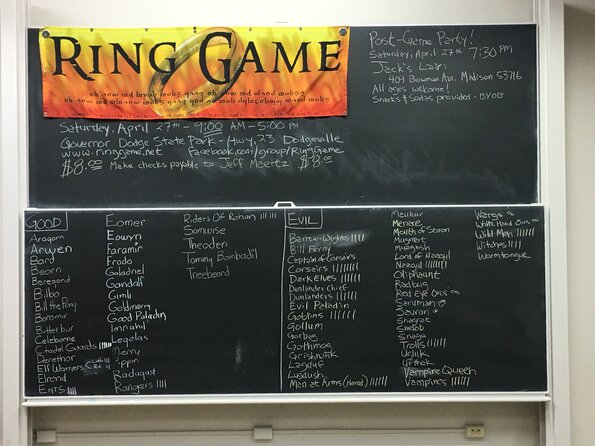 RING GAME
Saturday, April 27th - 9:00 AM - 5:00 PM
Governor Dodge State Park - Hwy. 23 Dodgeville
www.ringgame.net facebook.com/group/RingGame
$8.00 Make checks payable to Jeff Maertz $8.00
Post-Game Party!
Saturday, April 27th 7:30 pm
Jack's Lair:
409 Bowman Av. Madison 53716
All ages welcome!
Snacks & Sodas provided - BYOB
GOOD
Aragorn
Arwen
Bard
Beorn
Beregond
Bilbo
Bill the Pony
Boromir
Butterbur
Celeborne
Citadel Guards IIIII
Denethor
Elf Warriors
Elrond
Ents IIII
Eomer
Eowyn
Faramir
Frodo
Galadriel
Gandalf
Gimli
Goldberry
Good Paladin
Imrahil
Legolas
Merry
Pippin
Radagast
Rangers IIII
Riders Of Rohan IIIII
Samwise
Theoden
Tommy Bombadil
Treebeard
EVIL
Barrow-Wights IIII
Bill Ferny
Captain of Corsairs
Corsairs IIIIIII
Dark Elves IIIIII
Dunlander Chief
Dunlanders IIIIII
Evil Paladin
Goblins IIIIII
Gollum
Gorbag
Gothmog
Grishnakh
Lagduf
Lugdush
Men at Arms (Harad) IIIIII
Mauhur
Menace
Mouth of Sauron
Muzgash
Lord of Nazgul
Nazgul IIIIIIII
Oliphaunt
Radbug
Red Eye Orcs ∞
Saruman
Sauron
Shagrat
Shelob
Snaga
Trolls IIIIII
Ugluk
Vampire Queen
Vampires IIIIII
Wargs ∞
White Hand Orcs ∞
Wild Men IIIIII
Witches IIII
Wormtongue